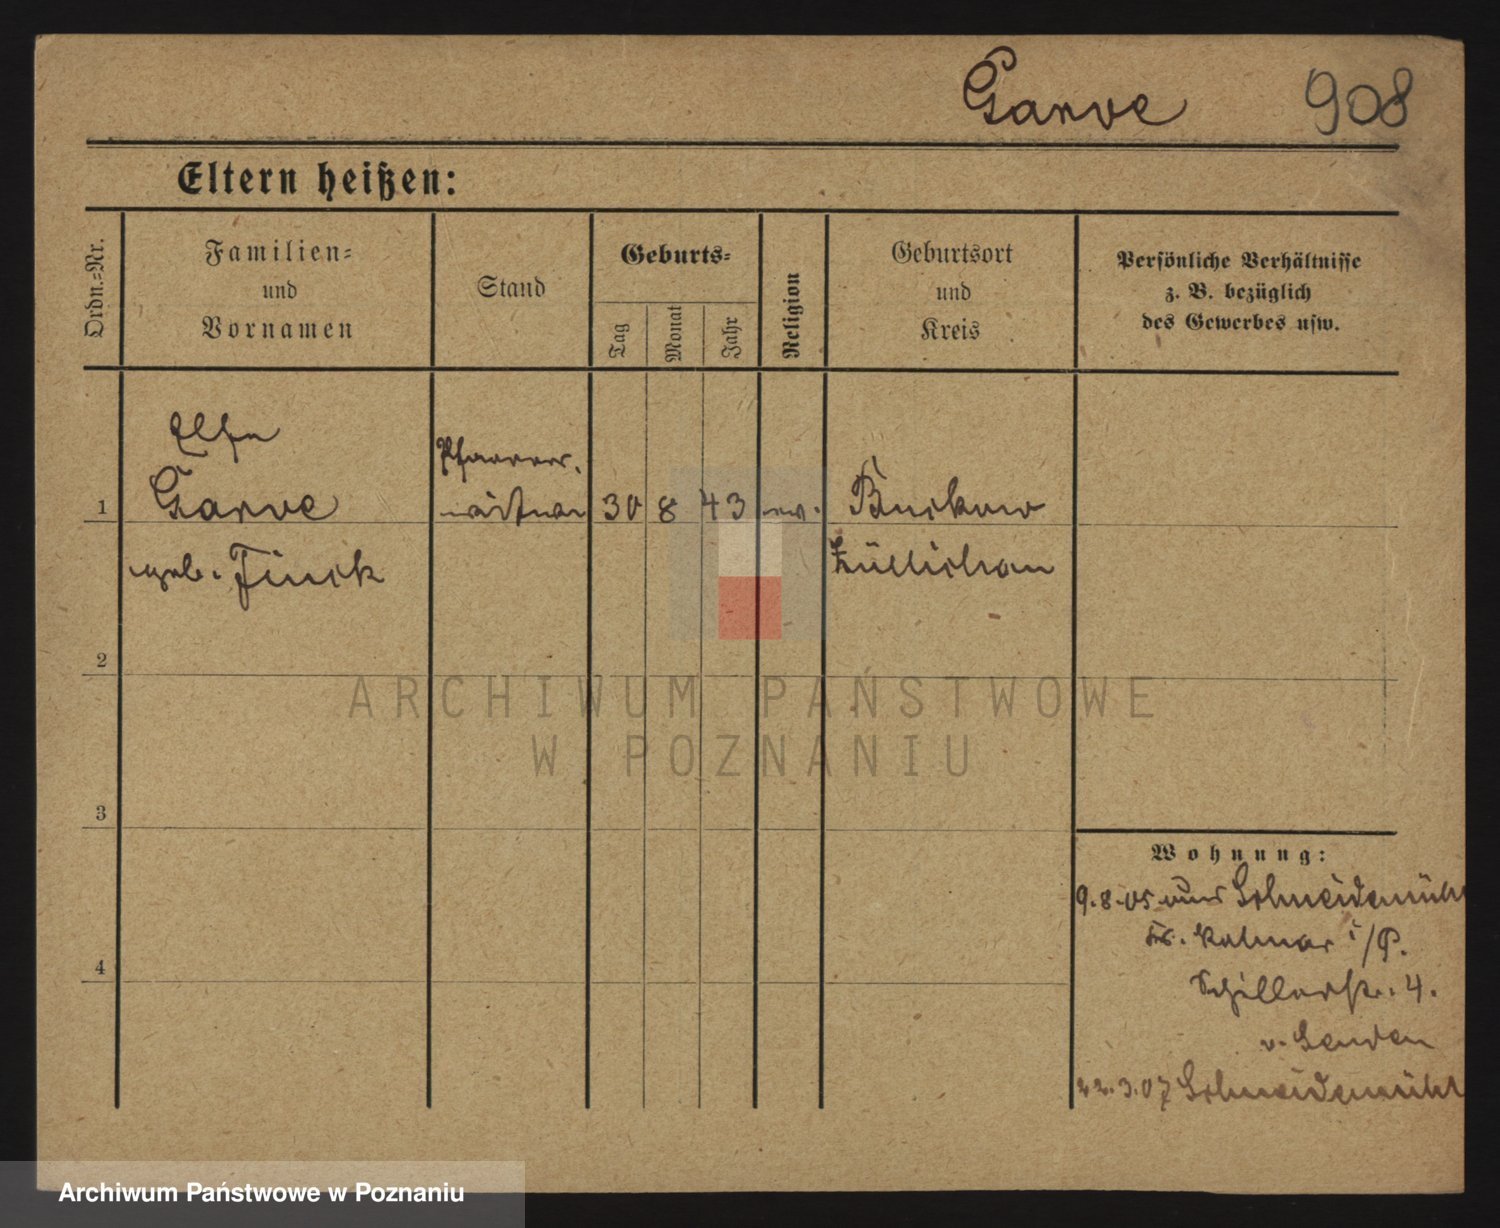 Garve 908
Eltern heißen:
Ordn.=Nr.
Familien=
und
Vornamen
Stand
Geburts=
Tag
Monat
Jahr
Religion
Geburtsort
und
Kreis
Persönliche Verhältnisse
z. B. bezüglich
des Gewerbes usw.
Pfarrer.
1 Garve witwe 30 8 43 ev. Buckow
geb. Finck Züllichau
2
ARCHIWUM PAŃSTWOWE
W POZNANIU
3
Wohnung:
9.8.05 Schneidemühl
Kr. Kolmar i/P.
Schillerstr. 4.
4
22.3.07 Schneidemühl
Archiwum Państwowe w Poznaniu